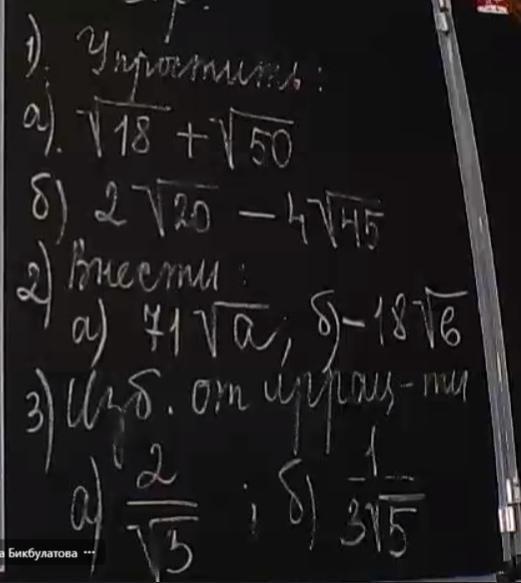 1). Упростить:
а). √18 + √50
б) 2√20 − 4√45
2) Внести:
а) 71√a; б) −18√6
3) Изб. от иррац-ти
а) 2/√5; б) 1/(3√5)
а Бикбулатова ···